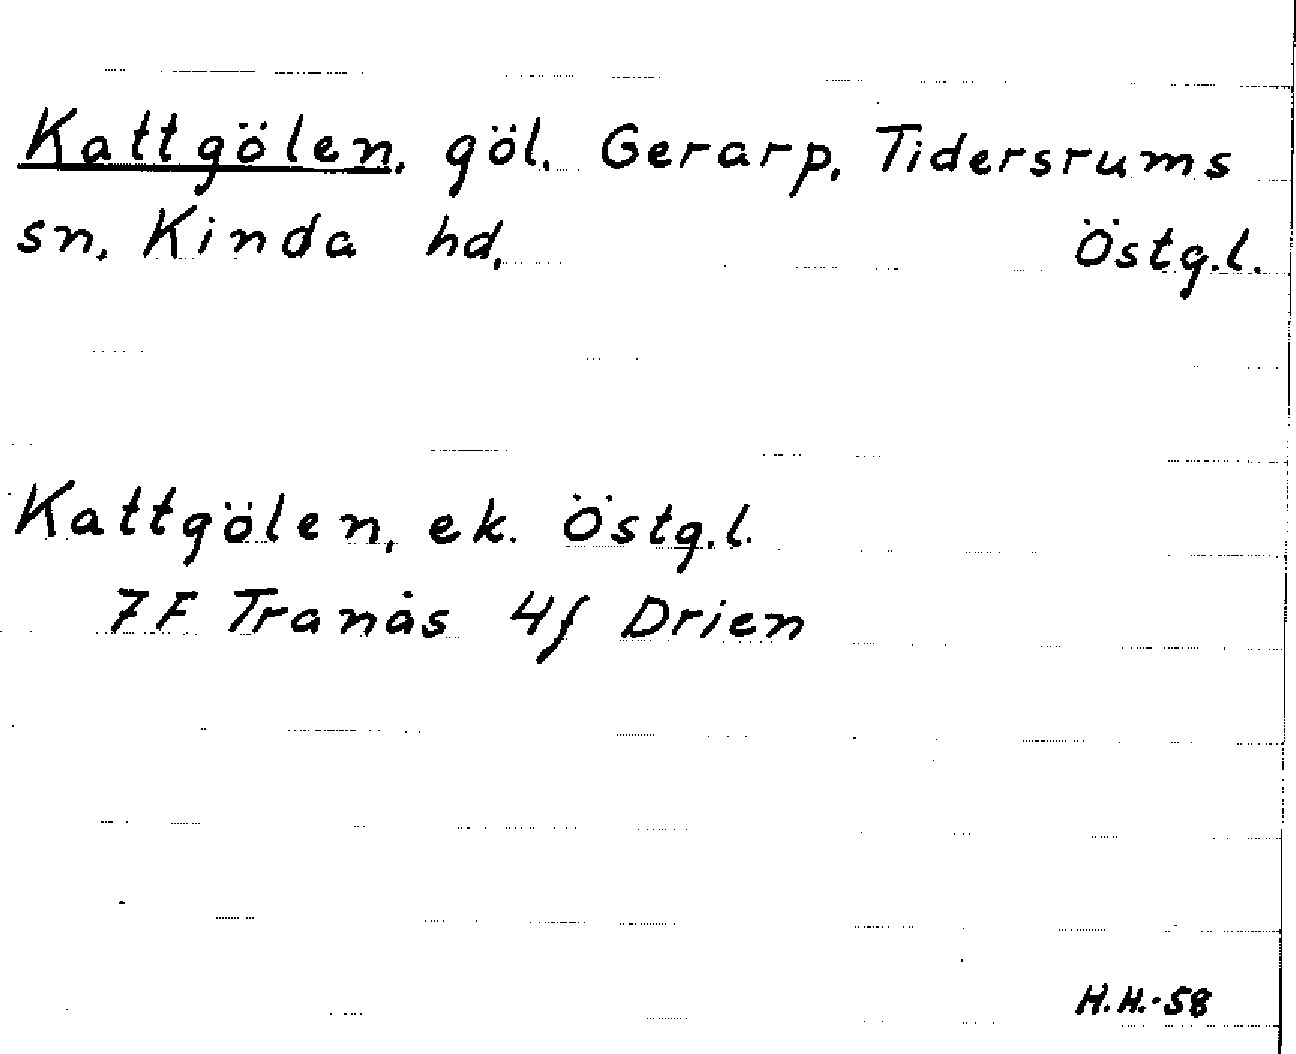 Kattgölen, göl, Gerarp, Tidersrums
sn, Kinda hd, Östg.l.
Kattgölen, ek. Östg.l.
7F Tranås 4f Drien
H.H.-58